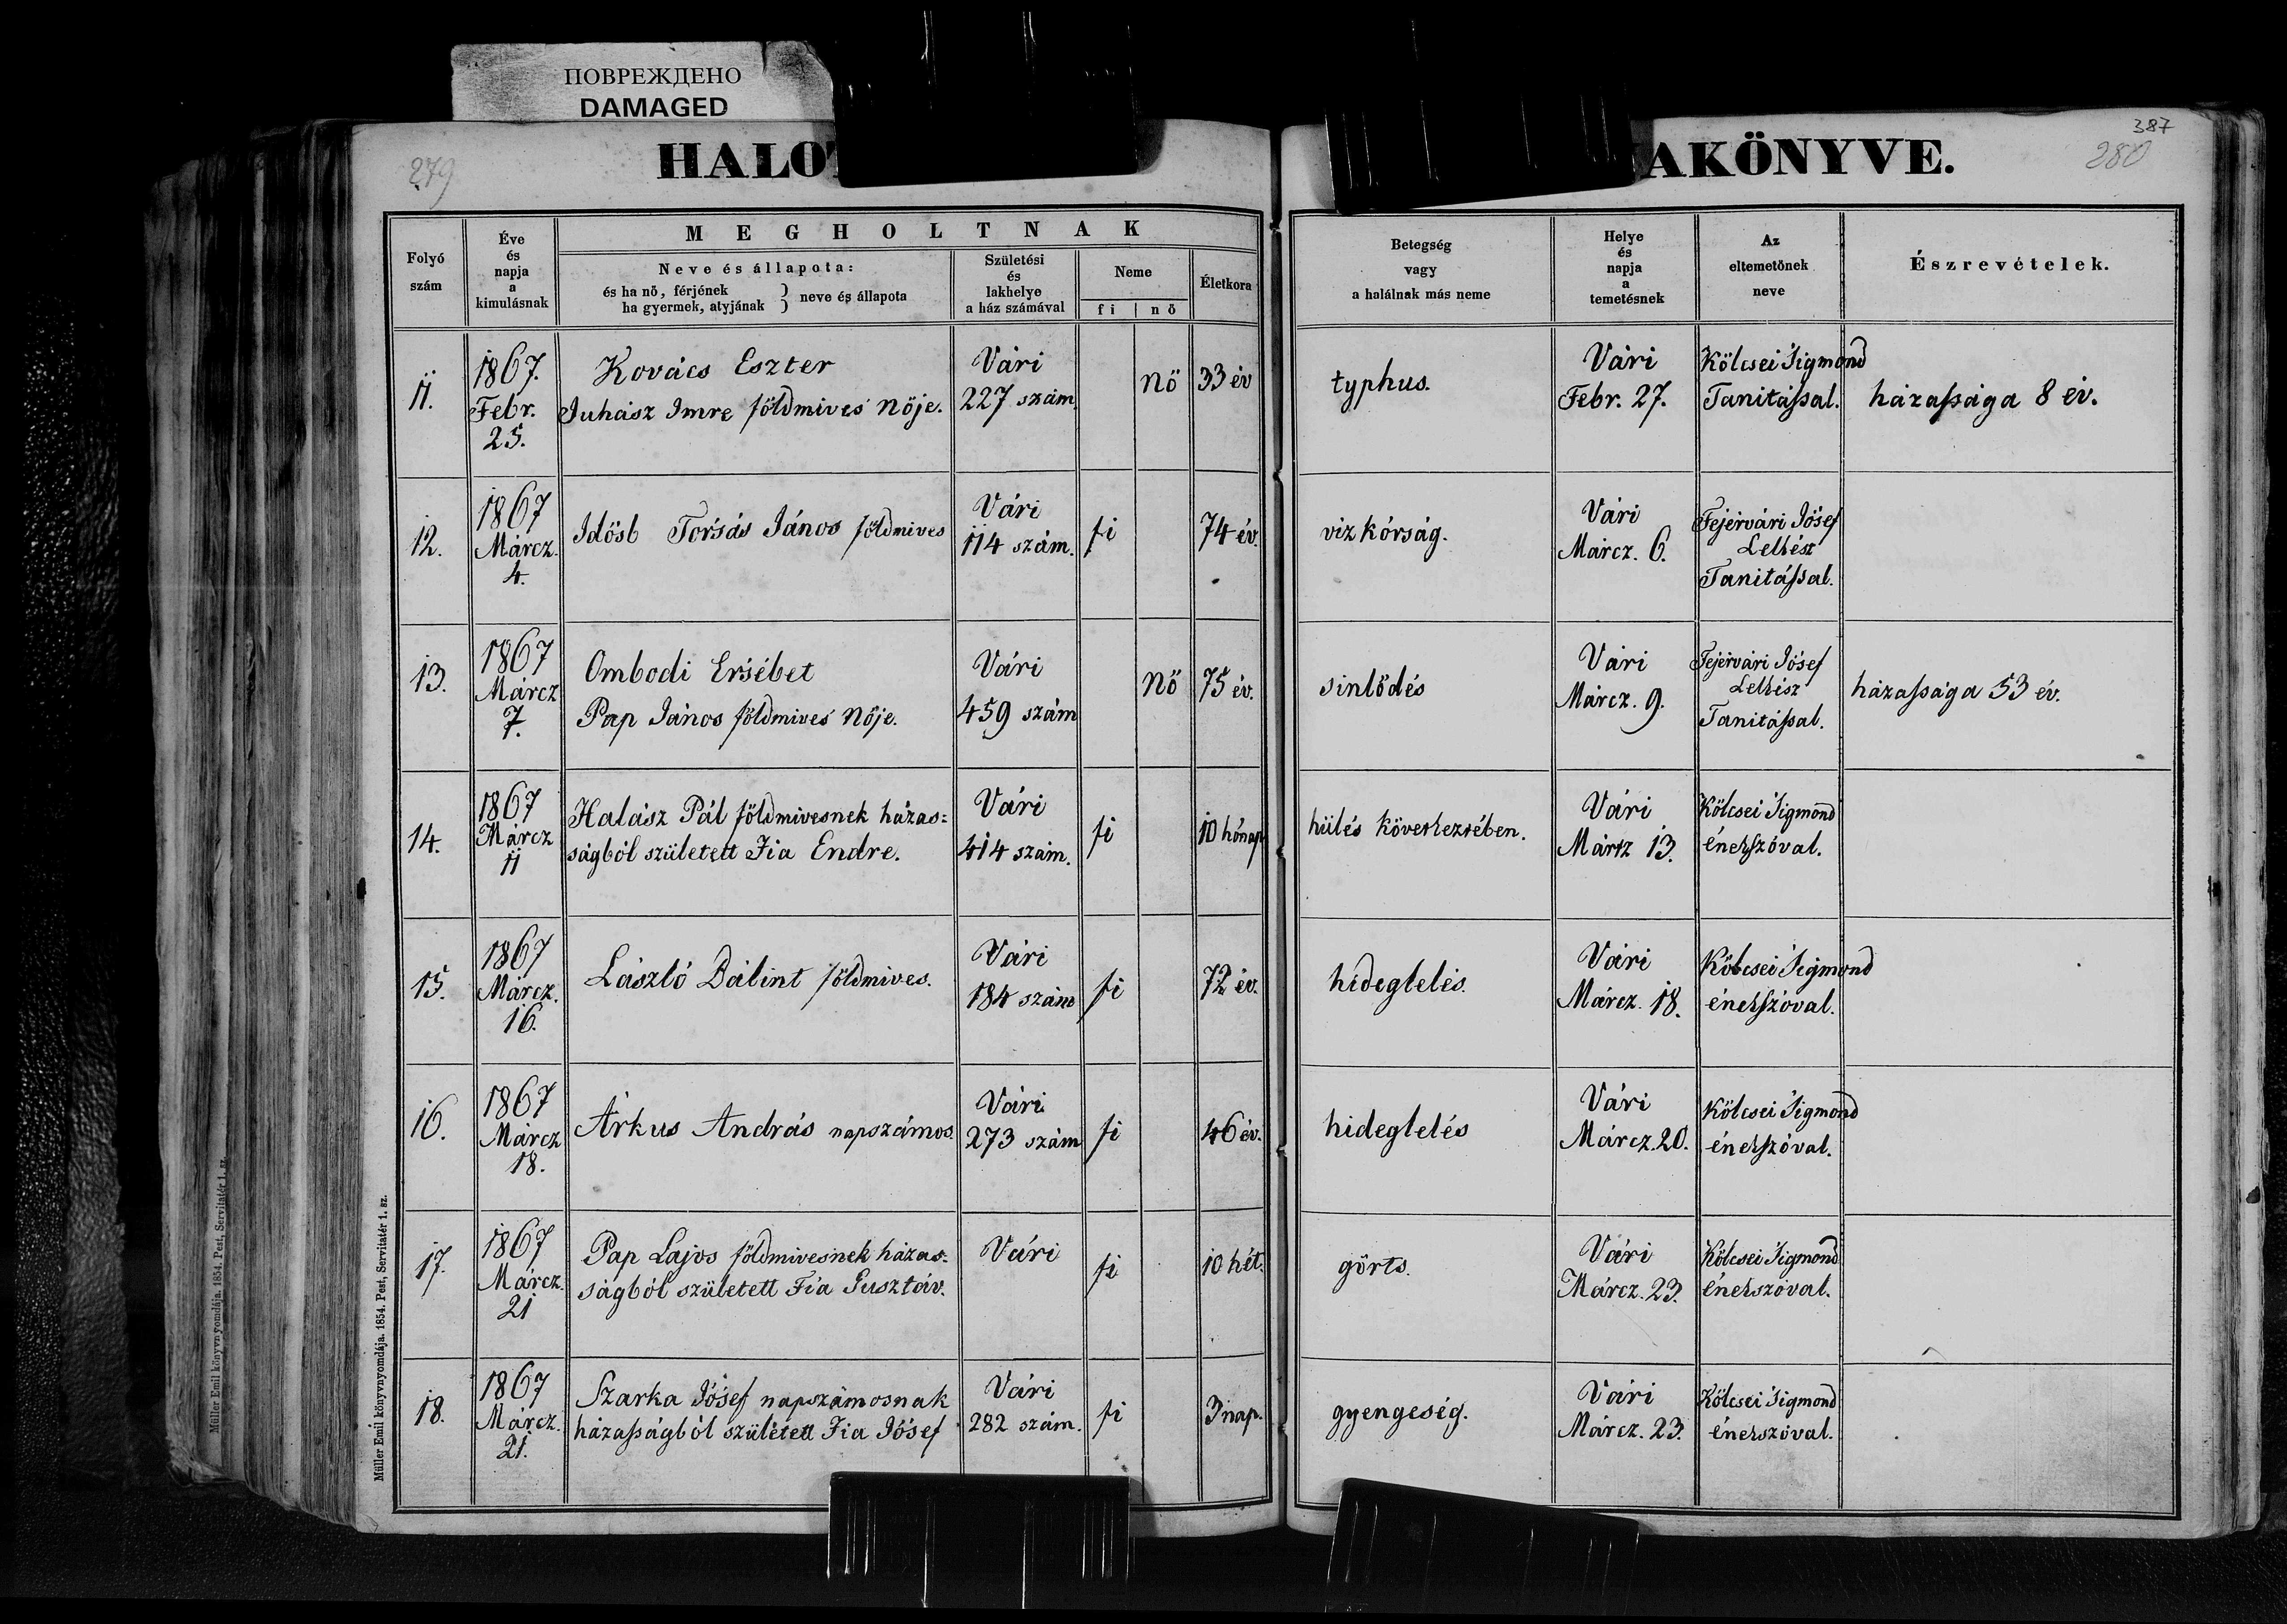 ПОВРЕЖДЕНО
DAMAGED
279
HALOT
AKÖNYVE.
387
280
Folyó szám
Éve és napja a kimulásnak
MEGHOLTNAK
Neve és állapota:
és ha nö, férjének
ha gyermek, atyjának } neve és állapota
Születési és lakhelye a ház számával
Neme
fi | nö
Életkora
Betegség vagy a halálnak más neme
Helye és napja a temetésnek
Az eltemetönek neve
Észrevételek.
11.
1867.
Febr.
25.
Kovács Eszter
Juhász Imre földmives Nöje.
Vári
227 szám
Nö
33 év
typhus.
Vári
Febr. 27.
Kölcsei Sigmond
Tanitáſsal.
házaſsága 8 év.
12.
1867
Márcz.
4.
Idösb Forsás János földmives
Vári
114 szám.
fi
74 év.
viz kórság.
Vári
Márcz. 6.
Fejérvári Jósef
Lelkész
Tanitáſsal.
13.
1867
Márcz
7.
Ombodi Ersébet
Pap János földmives Nöje.
Vári
459 szám
Nö
75 év.
sinlödés
Vári
Márcz. 9.
Fejérvári Jósef
Lelkész
Tanitáſsal.
házaſsága 53 év.
14.
1867
Márcz
11
Halász Pál földmivesnek házas=
ságból született Fia Endre.
Vári
414 szám.
fi
10 hónap
hülés következtében.
Vári
Mártz 13.
Kölcsei Sigmond
énekſzóval.
15.
1867
Márcz.
16.
László Bálint földmives.
Vári
184 szám
fi
72 év.
hideglelés.
Vári
Márcz. 18.
Kölcsei Sigmond
énekſzóval.
16.
1867
Márcz
18.
Árkus András napszámos.
Vári
273 szám
fi
46 év.
hideglelés
Vári
Márcz. 20.
Kölcsei Sigmond
énekſzóval.
17.
1867
Márcz.
21
Pap Lajos földmivesnek házas=
ságból született Fia Gusztáv.
Vári
fi
10 hét.
görts.
Vári
Márcz. 23.
Kölcsei Sigmond
énekszóval.
18.
1867
Márcz.
21.
Szarka Jósef napszámosnak
házaſságból született Fia Jósef
Vári
282 szám.
fi
3 nap.
gyengeség.
Vári
Márcz. 23.
Kölcsei Sigmond
énekszóval.
Müller Emil könyvnyomdája. 1854. Pest, Servitatér 1. sz.
Müller Emil könyvnyomdája. 1854. Pest, Servitatér 1. sz.